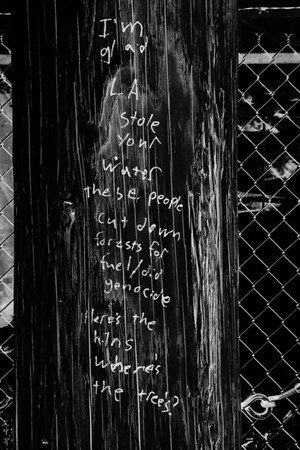 I'm
glad
LA
stole
your
water
the be people
cut down
forests for
fuel/did
genocide
Here's the
kilns
where's
the trees?